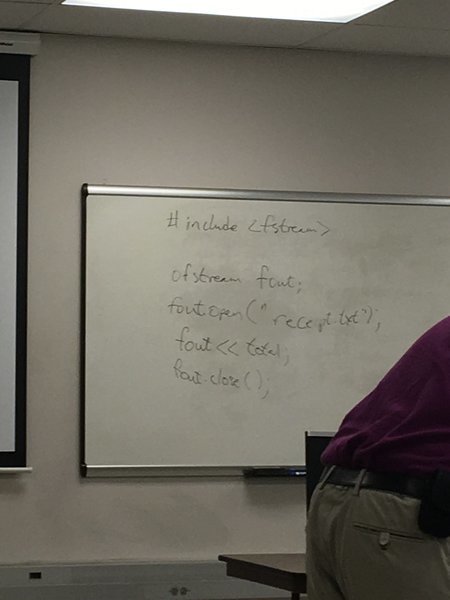 #include <fstream>
ofstream fout;
fout.open("recept.txt");
fout << total;
fout.close();